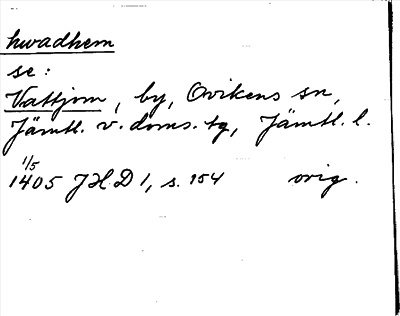 hwadhem
se:
Vattjom, by, Ovikens sn,
Jämtl. v. doms. tg, Jämtl. l.
1/5
1405 JHD 1, s. 154 orig.